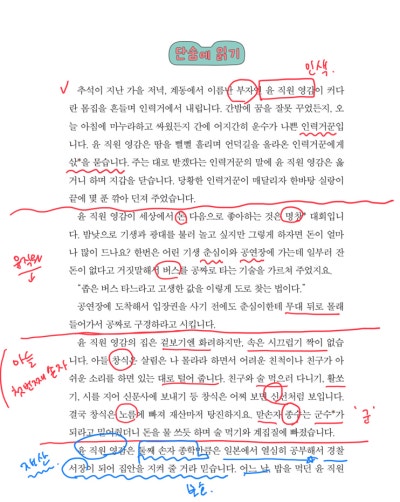 단숨에 읽기
인색.
추석이 지난 가을 저녁, 계동에서 이름난 부자인 윤 직원 영감이 커다
란 몸집을 흔들며 인력거에서 내립니다. 간밤에 꿈을 잘못 꾸었든지, 오
늘 아침에 마누라하고 싸웠든지 간에 어지간히 운수가 나쁜 인력거꾼입
니다. 윤 직원 영감은 땀을 뻘뻘 흘리며 언덕길을 올라온 인력거꾼에게
삯*을 묻습니다. 주는 대로 받겠다는 인력거꾼의 말에 윤 직원 영감은 옳
거니 하며 지갑을 닫습니다. 당황한 인력거꾼이 매달리자 한바탕 실랑이
끝에 몇 푼 깎아 던져 주었습니다.
윤 직원 영감이 세상에서 돈 다음으로 좋아하는 것은 명창* 대회입니
다. 밤낮으로 기생과 광대를 불러 놀고 싶지만 그렇게 하자면 돈이 얼마
나 많이 드나요? 한번은 어린 기생 춘심이와 공연장에 가는데 일부러 잔
돈이 없다고 거짓말해서 버스를 공짜로 타는 기술을 가르쳐 주었지요.
윤직원
“좁은 버스 타느라고 고생한 값을 이렇게 도로 찾는 법이다.”
공연장에 도착해서 입장권을 사기 전에도 춘심이한테 무대 뒤로 몰래
들어가서 공짜로 구경하라고 시킵니다.
윤 직원 영감의 집은 겉보기엔 화려하지만, 속은 시끄럽기 짝이 없습
니다. 아들 창식은 살림은 나 몰라라 하면서 어려운 친척이나 친구가 아
아들
첫번째 손자
쉬운 소리를 하면 있는 대로 털어 줍니다. 친구와 술 먹으러 다니기, 활쏘
기, 시를 지어 신문사에 보내기 등 창식은 어찌 보면 신선처럼 보입니다.
결국 창식은 노름에 빠져 재산마저 탕진하지요. 맏손자 종수는 군수*가
되라고 밀어줬더니 돈을 물 쓰듯 하며 술 먹기와 계집질에 빠졌습니다.
윤 직원 영감은 둘째 손자 종학만큼은 일본에서 열심히 공부해서 경찰
서장이 되어 집안을 지켜 줄 거라 믿습니다. 어느 날, 밥을 먹던 윤 직원